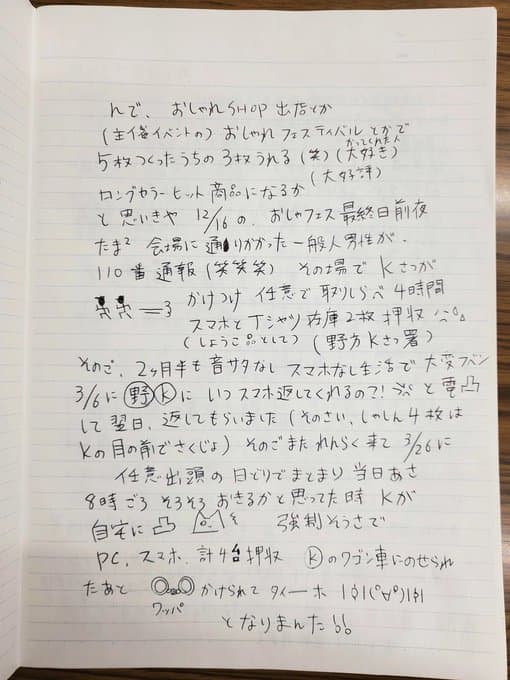 んで、おしゃれSHOP 出店とか
(主催イベントの) おしゃれフェスティバルとかで
かってくれた人
5枚つくったうちの3枚うれる (笑) (大好き)
(大好評)
ロングセラーヒット商品になるか
と思いきや 12/16の、おしゃフェス最終日前夜
たま² 会場に通りかかった一般人男性が、
110番通報 (笑笑笑) その場でKさつが
=3 かけつけ 任意で取りしらべ 4時間
スマホとTシャツ在庫2枚 押収
(しょうこ品として) (野方Kさつ署)
そのご、2ヶ月半も音サタなし スマホなし生活で大変フベン
3/6に野Kに いつスマホ返してくれるの?! と電凸
して翌日、返してもらいました (そのさい、しゃしん4枚は
Kの目の前でさくじょ) そのごまたれんらく来て 3/26に
任意出頭の日どりでまとまり 当日あさ
8時ごろ そろそろおきるかと思ってた時 Kが
自宅に凸 を 強制そうさで
PC、スマホ、計4台押収 Kのワゴン車にのせられ
たあと かけられて タイーホ |φ|(°∀°)|φ|
ワッパ
となりまんた!!